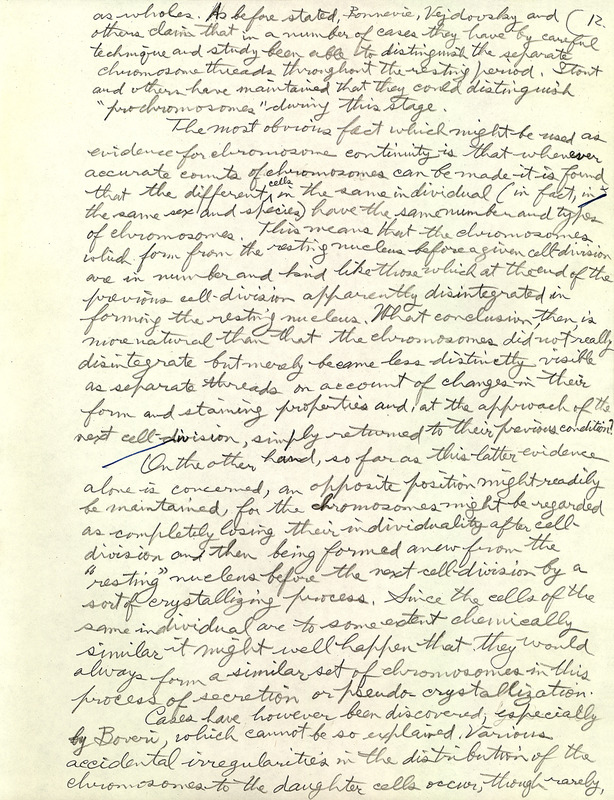 as wholes. As before stated, Bonnevie, Vejdovsky and (12.
others claim that in a number of cases they have by careful
technique and study been able to distinguish the separate
chromosome threads throughout the resting period. Stout
and others have maintained that they could distinguish
"prochromosomes" during this stage.
The most obvious fact which might be used as
evidence for chromosome continuity is that whenever
accurate counts of chromosomes can be made it is found
that the different cells in the same individual (in fact, in
the same sex and species) have the same number and types
of chromosomes. This means that the chromosomes
which form from the resting nucleus before a given cell-division
are in number and kind like those which at the end of the
previous cell-division apparently disintegrated in
forming the resting nucleus. What conclusion, then, is
more natural than that the chromosomes did not really
disintegrate but merely became less distinctly visible
as separate threads on account of changes in their
form and staining properties and, at the approach of the
next cell-division, simply returned to their previous condition?
On the other hand, so far as this latter evidence
alone is concerned, an opposite position might readily
be maintained, for the chromosomes might be regarded
as completely losing their individuality after cell-
division and then being formed anew from the
"resting" nucleus before the next cell-division by a
sort of crystallizing process. Since the cells of the
same individual are to some extent chemically
similar it might well happen that they would
always form a similar set of chromosomes in this
process of secretion or pseudo-crystallization.
Cases have however been discovered, especially
by Boveri, which cannot be so explained. Various
accidental irregularities in the distribution of the
chromosomes to the daughter cells occur, though rarely,